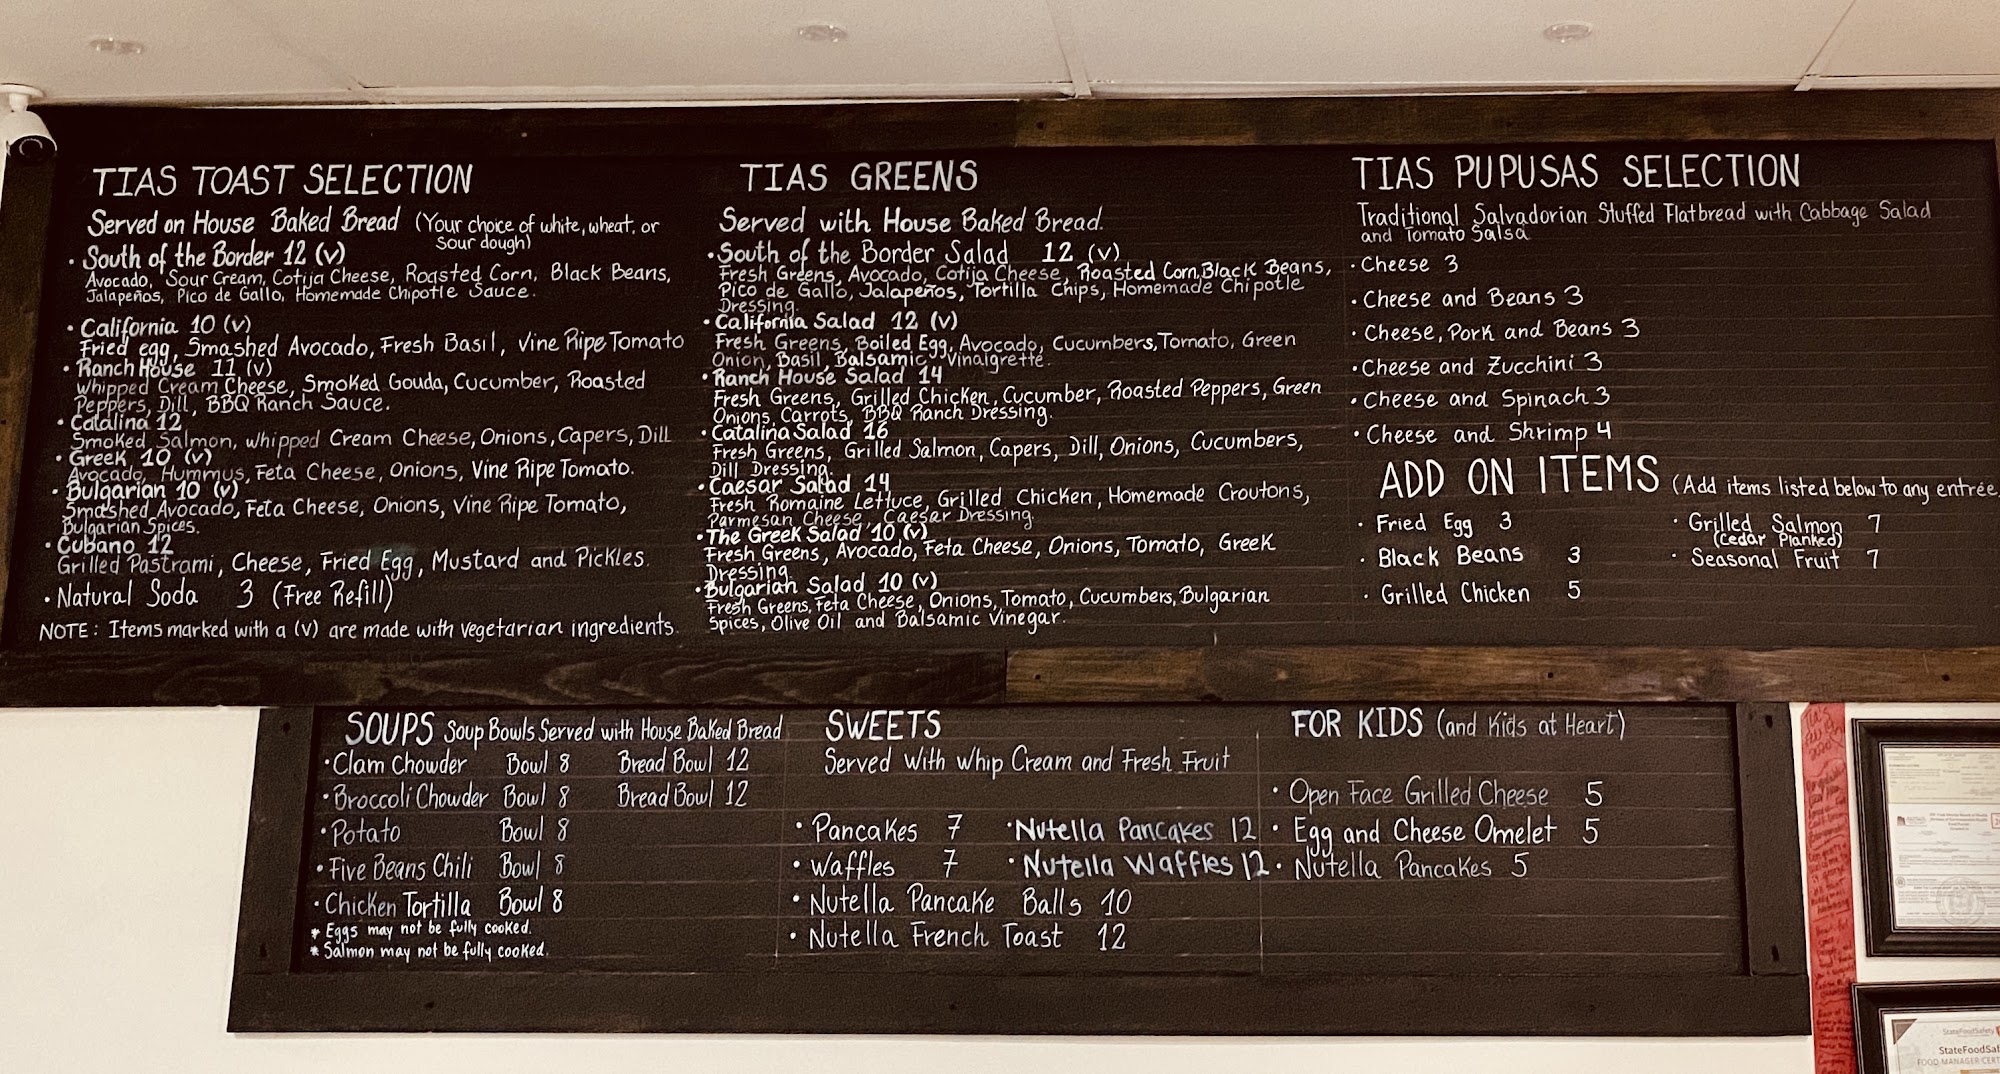 TIAS TOAST SELECTION
Served on House Baked Bread (Your choice of white, wheat, or
sour dough)
• South of the Border 12 (v)
Avocado, Sour Cream, Cotija Cheese, Roasted Corn, Black Beans,
Jalapeños, Pico de Gallo, Homemade Chipotle Sauce.
• California 10 (v)
Fried egg, Smashed Avocado, Fresh Basil, Vine Ripe Tomato
• Ranch House 11 (v)
Whipped Cream Cheese, Smoked Gouda, Cucumber, Roasted
Peppers, Dill, BBQ Ranch Sauce.
• Catalina 12
Smoked Salmon, Whipped Cream Cheese, Onions, Capers, Dill
• Greek 10 (v)
Avocado, Hummus, Feta Cheese, Onions, Vine Ripe Tomato.
• Bulgarian 10 (v)
Smashed Avocado, Feta Cheese, Onions, Vine Ripe Tomato,
Bulgarian Spices.
• Cubano 12
Grilled Pastrami, Cheese, Fried Egg, Mustard and Pickles.
• Natural Soda 3 (Free Refill)
NOTE: Items marked with a (v) are made with vegetarian ingredients.
TIAS GREENS
Served with House Baked Bread.
• South of the Border Salad 12 (v)
Fresh Greens, Avocado, Cotija Cheese, Roasted Corn, Black Beans,
Pico de Gallo, Jalapeños, Tortilla Chips, Homemade Chipotle
Dressing.
• California Salad 12 (v)
Fresh Greens, Boiled Egg, Avocado, Cucumbers, Tomato, Green
Onion, Basil, Balsamic, Vinaigrette.
• Ranch House Salad 14
Fresh Greens, Grilled Chicken, Cucumber, Roasted Peppers, Green
Onions, Carrots, BBQ Ranch Dressing.
• Catalina Salad 16
Fresh Greens, Grilled Salmon, Capers, Dill, Onions, Cucumbers,
Dill Dressing.
• Caesar Salad 14
Fresh Romaine Lettuce, Grilled Chicken, Homemade Croutons,
Parmesan Cheese, Caesar Dressing.
• The Greek Salad 10 (v)
Fresh Greens, Avocado, Feta Cheese, Onions, Tomato, Greek
Dressing.
• Bulgarian Salad 10 (v)
Fresh Greens, Feta Cheese, Onions, Tomato, Cucumbers, Bulgarian
Spices, Olive Oil and Balsamic Vinegar.
TIAS PUPUSAS SELECTION
Traditional Salvadorian Stuffed Flatbread with Cabbage Salad
and Tomato Salsa
• Cheese 3
• Cheese and Beans 3
• Cheese, Pork and Beans 3
• Cheese and Zucchini 3
• Cheese and Spinach 3
• Cheese and Shrimp 4
ADD ON ITEMS (Add items listed below to any entrée
• Fried Egg 3
• Black Beans 3
• Grilled Chicken 5
• Grilled Salmon 7
(Cedar Planked)
• Seasonal Fruit 7
SOUPS Soup Bowls Served with House Baked Bread
• Clam Chowder Bowl 8 Bread Bowl 12
• Broccoli Chowder Bowl 8 Bread Bowl 12
• Potato Bowl 8
• Five Beans Chili Bowl 8
• Chicken Tortilla Bowl 8
* Eggs may not be fully cooked.
* Salmon may not be fully cooked.
SWEETS
Served With Whip Cream and Fresh Fruit
• Pancakes 7 • Nutella Pancakes 12
• Waffles 7 • Nutella Waffles 12
• Nutella Pancake Balls 10
• Nutella French Toast 12
FOR KIDS (and Kids at Heart)
• Open Face Grilled Cheese 5
• Egg and Cheese Omelet 5
• Nutella Pancakes 5
StateFoodSafety
StateFoodSaf
FOOD MANAGER CERT